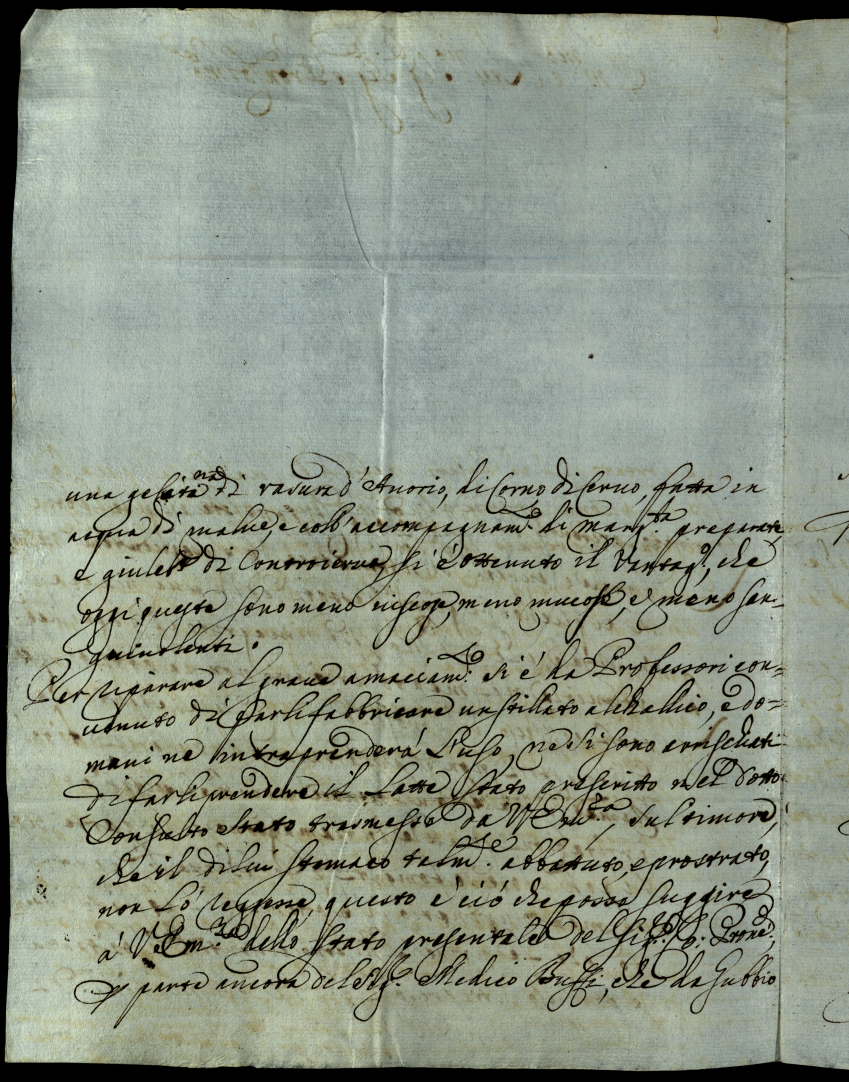 una gelatina di rasura d'Auorio, di Corno di Ceruo, fatta in
acqua di malue, e coll'accompagnam.to di marg.te preparate,
e giulebb di Contraierua, si è ottenuto il Vantag.o, che
oggi queste sono meno uiscose, meno mucose, e meno san=
guinolenti.
Per riparare al graue amaciam.to si è da Professori con=
uenuto di farli fabbricare un stillato alchallico, e do=
mani ne intraprenderà l'uso, ne si sono arrischiati
di farli prendere il Latte stato prescritto nel Dotto
Consulto stato trasmesso da V. Em.za, sul timore,
che il di lui stomaco talm.te abbattuto, e prostrato,
non lo reggesse, questo è ciò che posso suggerire
à V. Em.za dello stato presentale del Sig.r
parte ancora del Sig.r Medico Buffi, che da Gubbio